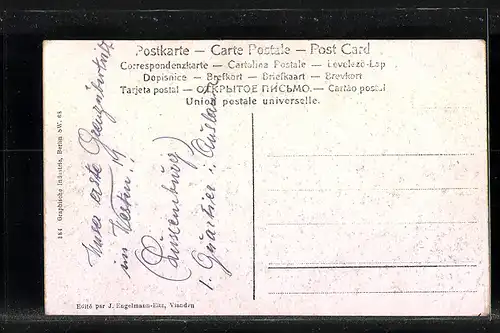 Postkarte — Carte Postale — Post Card
Correspondenzkarte — Cartolina Postale — Levelező-Lap
Dopisnice — Brefkort — Briefkaart — Brevkort
Tarjeta postal — ОТКРЫТОЕ ПИСЬМО. — Cartão postal
Union postale universelle.
184 Graphische Industrie, Berlin SW. 68
Unser erste Grenzübertritt
im Westen!
(Luxemburg)
1. Quartier i. Ausland
Edité par J. Engelmann-Eltz, Vianden